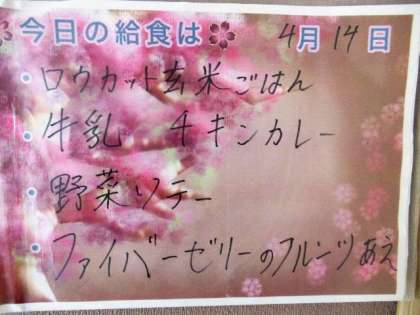 今日の給食は 4月14日
・ロウカット玄米ごはん
・牛乳 チキンカレー
・野菜ソテー
・ファイバーゼリーのフルーツあえ